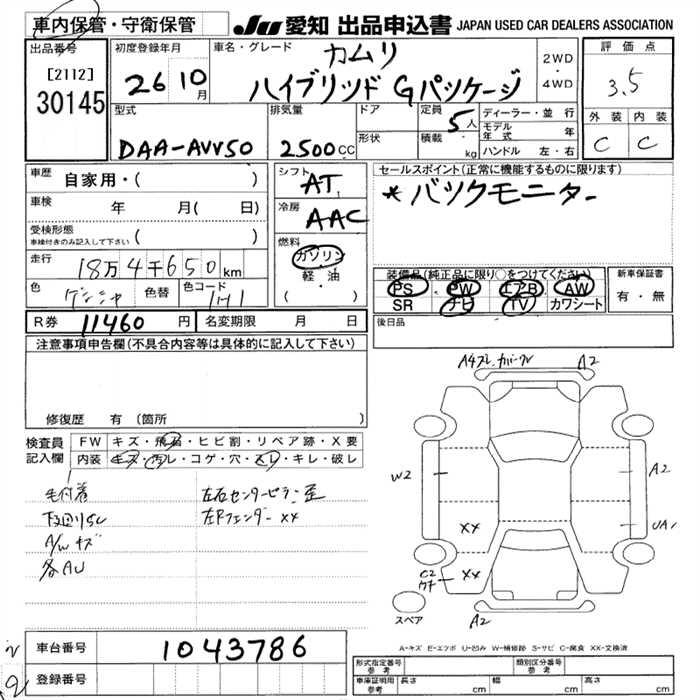 車内保管・守衛保管
JU 愛知 出品申込書 JAPAN USED CAR DEALERS ASSOCIATION
出品番号 初度登録年月 車名・グレード カムリ 2WD・4WD 評価点
[2112] 30145 26 10月 ハイブリッド Gパッケージ 3.5
型式 排気量 ドア 定員 5人 ディーラー・並行 外装 内装
モデル年式 年
DAA-AVV50 2500CC 形状 積載 kg ハンドル 左・右 C C
車歴 自家用・( ) シフト AT セールスポイント(正常に機能するものに限ります)
車検 年 月( 日) 冷房 AAC *バックモニター
受検形態 車検付きのみ記入して下さい ( ) 燃料 ガソリン
走行 18万4千650km 軽・油
( )
装備品(純正品に限り○をつけてください) 新車保証書
色 色替 色コード 1H1 PS PW エアB AW 有・無
SR ナビ TV カワシート
R券 11460円 名変期限 月 日 後日品
注意事項申告欄(不具合内容等は具体的に記入して下さい)
A2
修復歴 有 (箇所 )
検査員記入欄 FW キズ・飛石・ヒビ割・リペア跡・X要
内装 キズ・汚レ・コゲ・穴・スレ・キレ・破レ
毛付着 左右センターピラー歪
下回りS 左Rフェンダーxx
A/Wキズ
各AU
W2 A2
XX UA1
C2 XX
スペア A2
A-キズ E-エクボ U-凹み W-補修跡 S-サビ C-腐食 XX-交換済
車台番号 1043786
登録番号
形式指定番号 参考 類別区分番号 参考
車庫証明用 参考 長さ cm 幅 cm 高さ cm